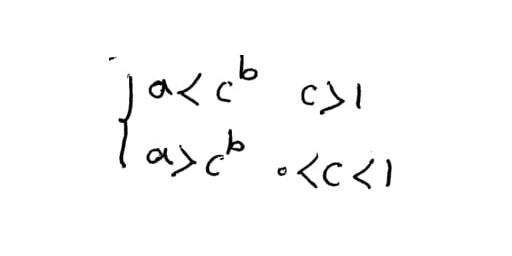 { a < c^b   c > 1
a > c^b   0 < c < 1